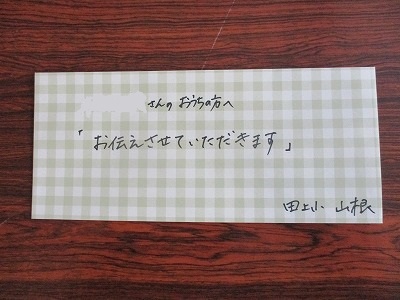 さんのおうちの方へ
「お伝えさせていただきます」
田上小 山根